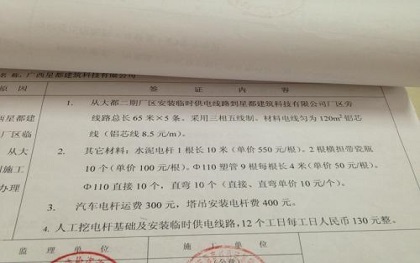 名称：广西星都建筑科技有限公司
原因 签证内容
1. 从大都二期厂区安装临时供电线路到星都建筑科技有限公司厂区旁
线路总长 65 米×5 条，采用三相五线制，材料电线匀为 120m² 铝芯
线（铝芯线 8.5 元/m）。
2. 其它材料：水泥电杆 1 根长 10 米（单价 550 元/根）、2 根横担带瓷瓶
10 个（单价 100 元/根）、Φ110 塑管 9 根每根长 4 米（单价 50 元/根）、
Φ110 直接 10 个，直弯 10 个（直接、直弯单价 10 元/个）。
3. 汽车电杆运费 300 元，塔吊安装电杆费 400 元。
4. 人工挖电杆基础及安装临时供电线路，12 个工日每工日人民币 130 元整。
星都建
厂区临
从大
施工
办理
监理单位 施工单位